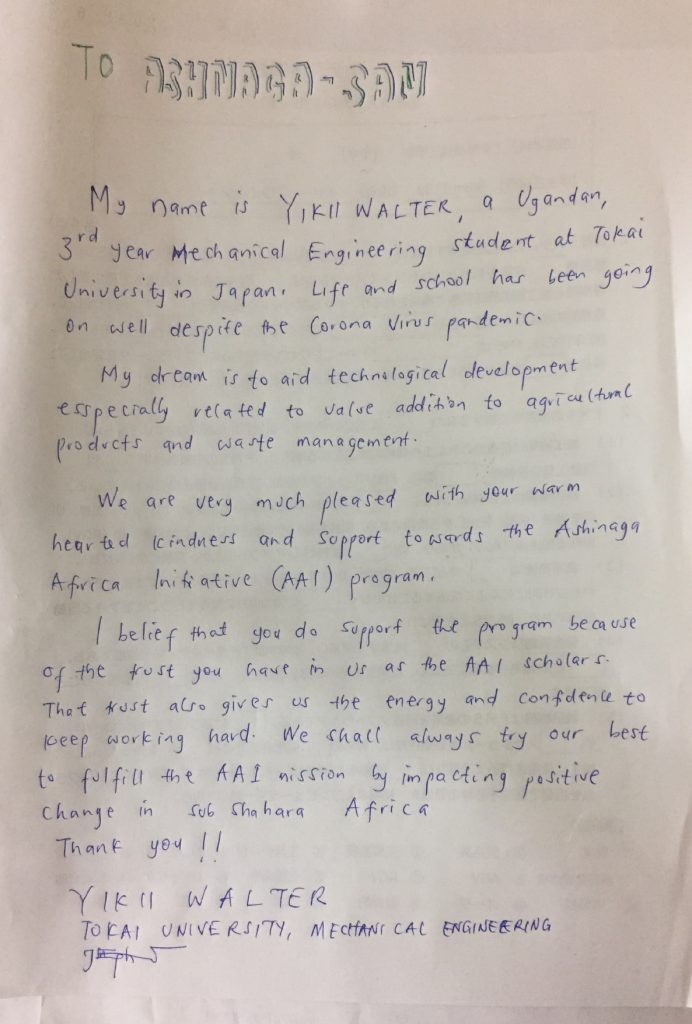 To ASHINAGA-SAN
My name is YIKII WALTER, a Ugandan,
3rd year Mechanical Engineering student at Tokai
University in Japan. Life and school has been going
on well despite the Corona Virus pandemic.
My dream is to aid technological development
esspecially related to value addition to agricultural
products and waste management.
We are very much pleased with your warm
hearted kindness and support towards the Ashinaga
Africa Initiative (AAI) program.
I belief that you do support the program because
of the trust you have in us as the AAI scholars.
That trust also gives us the energy and confidence to
keep working hard. We shall always try our best
to fulfill the AAI mission by impacting positive
change in sub Shahara Africa
Thank you !!
YIKII WALTER
TOKAI UNIVERSITY, MECHANICAL ENGINEERING